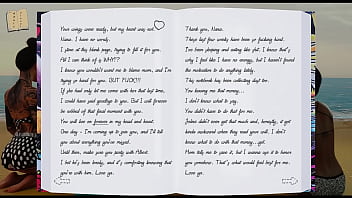 Your wings were ready, but my heart was not.
Nana. I have no words.
I stare at this blank page, trying to fill it for you.
All I can think of is WHY!?
I know you wouldn't want me to blame mom, and I'm
trying so hard for you. BUT FUCK!!!
If she had only let me come with her that last time,
I could have said goodbye to you. But I will forever
be robbed of that final moment with you.
You will live on forever in my head and heart.
One day - I'm coming up to join you, and I'll tell
you about everything you've missed.
Until then, make sure you party with Albert.
I bet he's been lonely, and it's comforting knowing that
you're with him. Love ya.
Thank you, Nana.
These last few weeks have been so fucking hard.
I've been sleeping and eating like shit. I know that's
why I feel like I have no energy, but I haven't found
the motivation to do anything lately.
This notebook has been collecting dust too.
You leaving me that money...
I don't know what to say.
You didn't have to do that for me.
Jordan didn't even get that much and, honestly, it got
kinda awkward when they read your will. I don't
know what to do with that money...yet.
Mom tells me to save it, but I wanna use it to honor
you somehow. That's what would feel best for me.
Love ya.